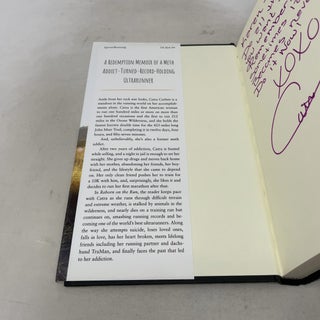 A REDEMPTION MEMOIR OF A METH
ADDICT-TURNED-RECORD-HOLDING
ULTRARUNNER
Aside from her rock star looks, Catra Corbett is a
standout in the running world on her accomplish-
ments alone. Catra is the first American woman
to run one hundred miles or more on more than
one hundred occasions and the first to run
the Ohlone Wilderness, and she holds the
fastest known double time for the 425 miles long
John Muir Trail, completing it in twelve days, four
hours, and fifty-seven minutes.
And, unbelievably, she's also a former meth
addict.
After two years of addiction, Catra is busted
while selling, and a night in jail is enough to set her
straight. She gives up drugs and moves back home
with her mother, abandoning her friends, her boy-
friend, and the lifestyle that she came to depend
on. Her only clean friend pushes her to train for
a 10K with him, and, surprisingly, she likes it and
decides to run her first marathon after that.
In Reborn on the Run, the reader keeps pace
with Catra as she runs through difficult terrain
and extreme weather, is stalked by animals in the
wilderness, and nearly dies on a training run but
continues on, smashing running records and be-
coming one of the world's best ultrarunners. Along
the way she attempts suicide, loses loved ones,
falls in love, has her heart broken, meets lifelong
friends including her running partner and dachs-
hund TruMan, and finally faces the past that led
to her addiction.
XOXO